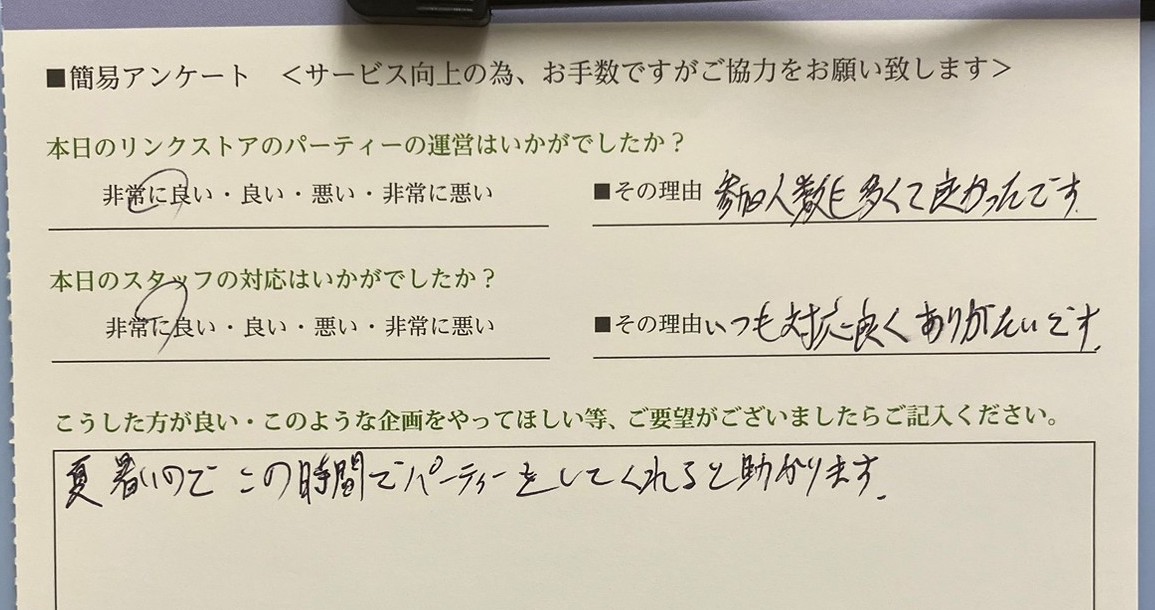 ■簡易アンケート <サービス向上の為、お手数ですがご協力をお願い致します>
本日のリンクストアのパーティーの運営はいかがでしたか？
非常に良い・良い・悪い・非常に悪い ■その理由 参加人数も多くて良かったです
本日のスタッフの対応はいかがでしたか？
非常に良い・良い・悪い・非常に悪い ■その理由 いつも対応良くありがたいです.
こうした方が良い・このような企画をやってほしい等、ご要望がございましたらご記入ください。
夏暑いのでこの時間でパーティーをしてくれると助かります.